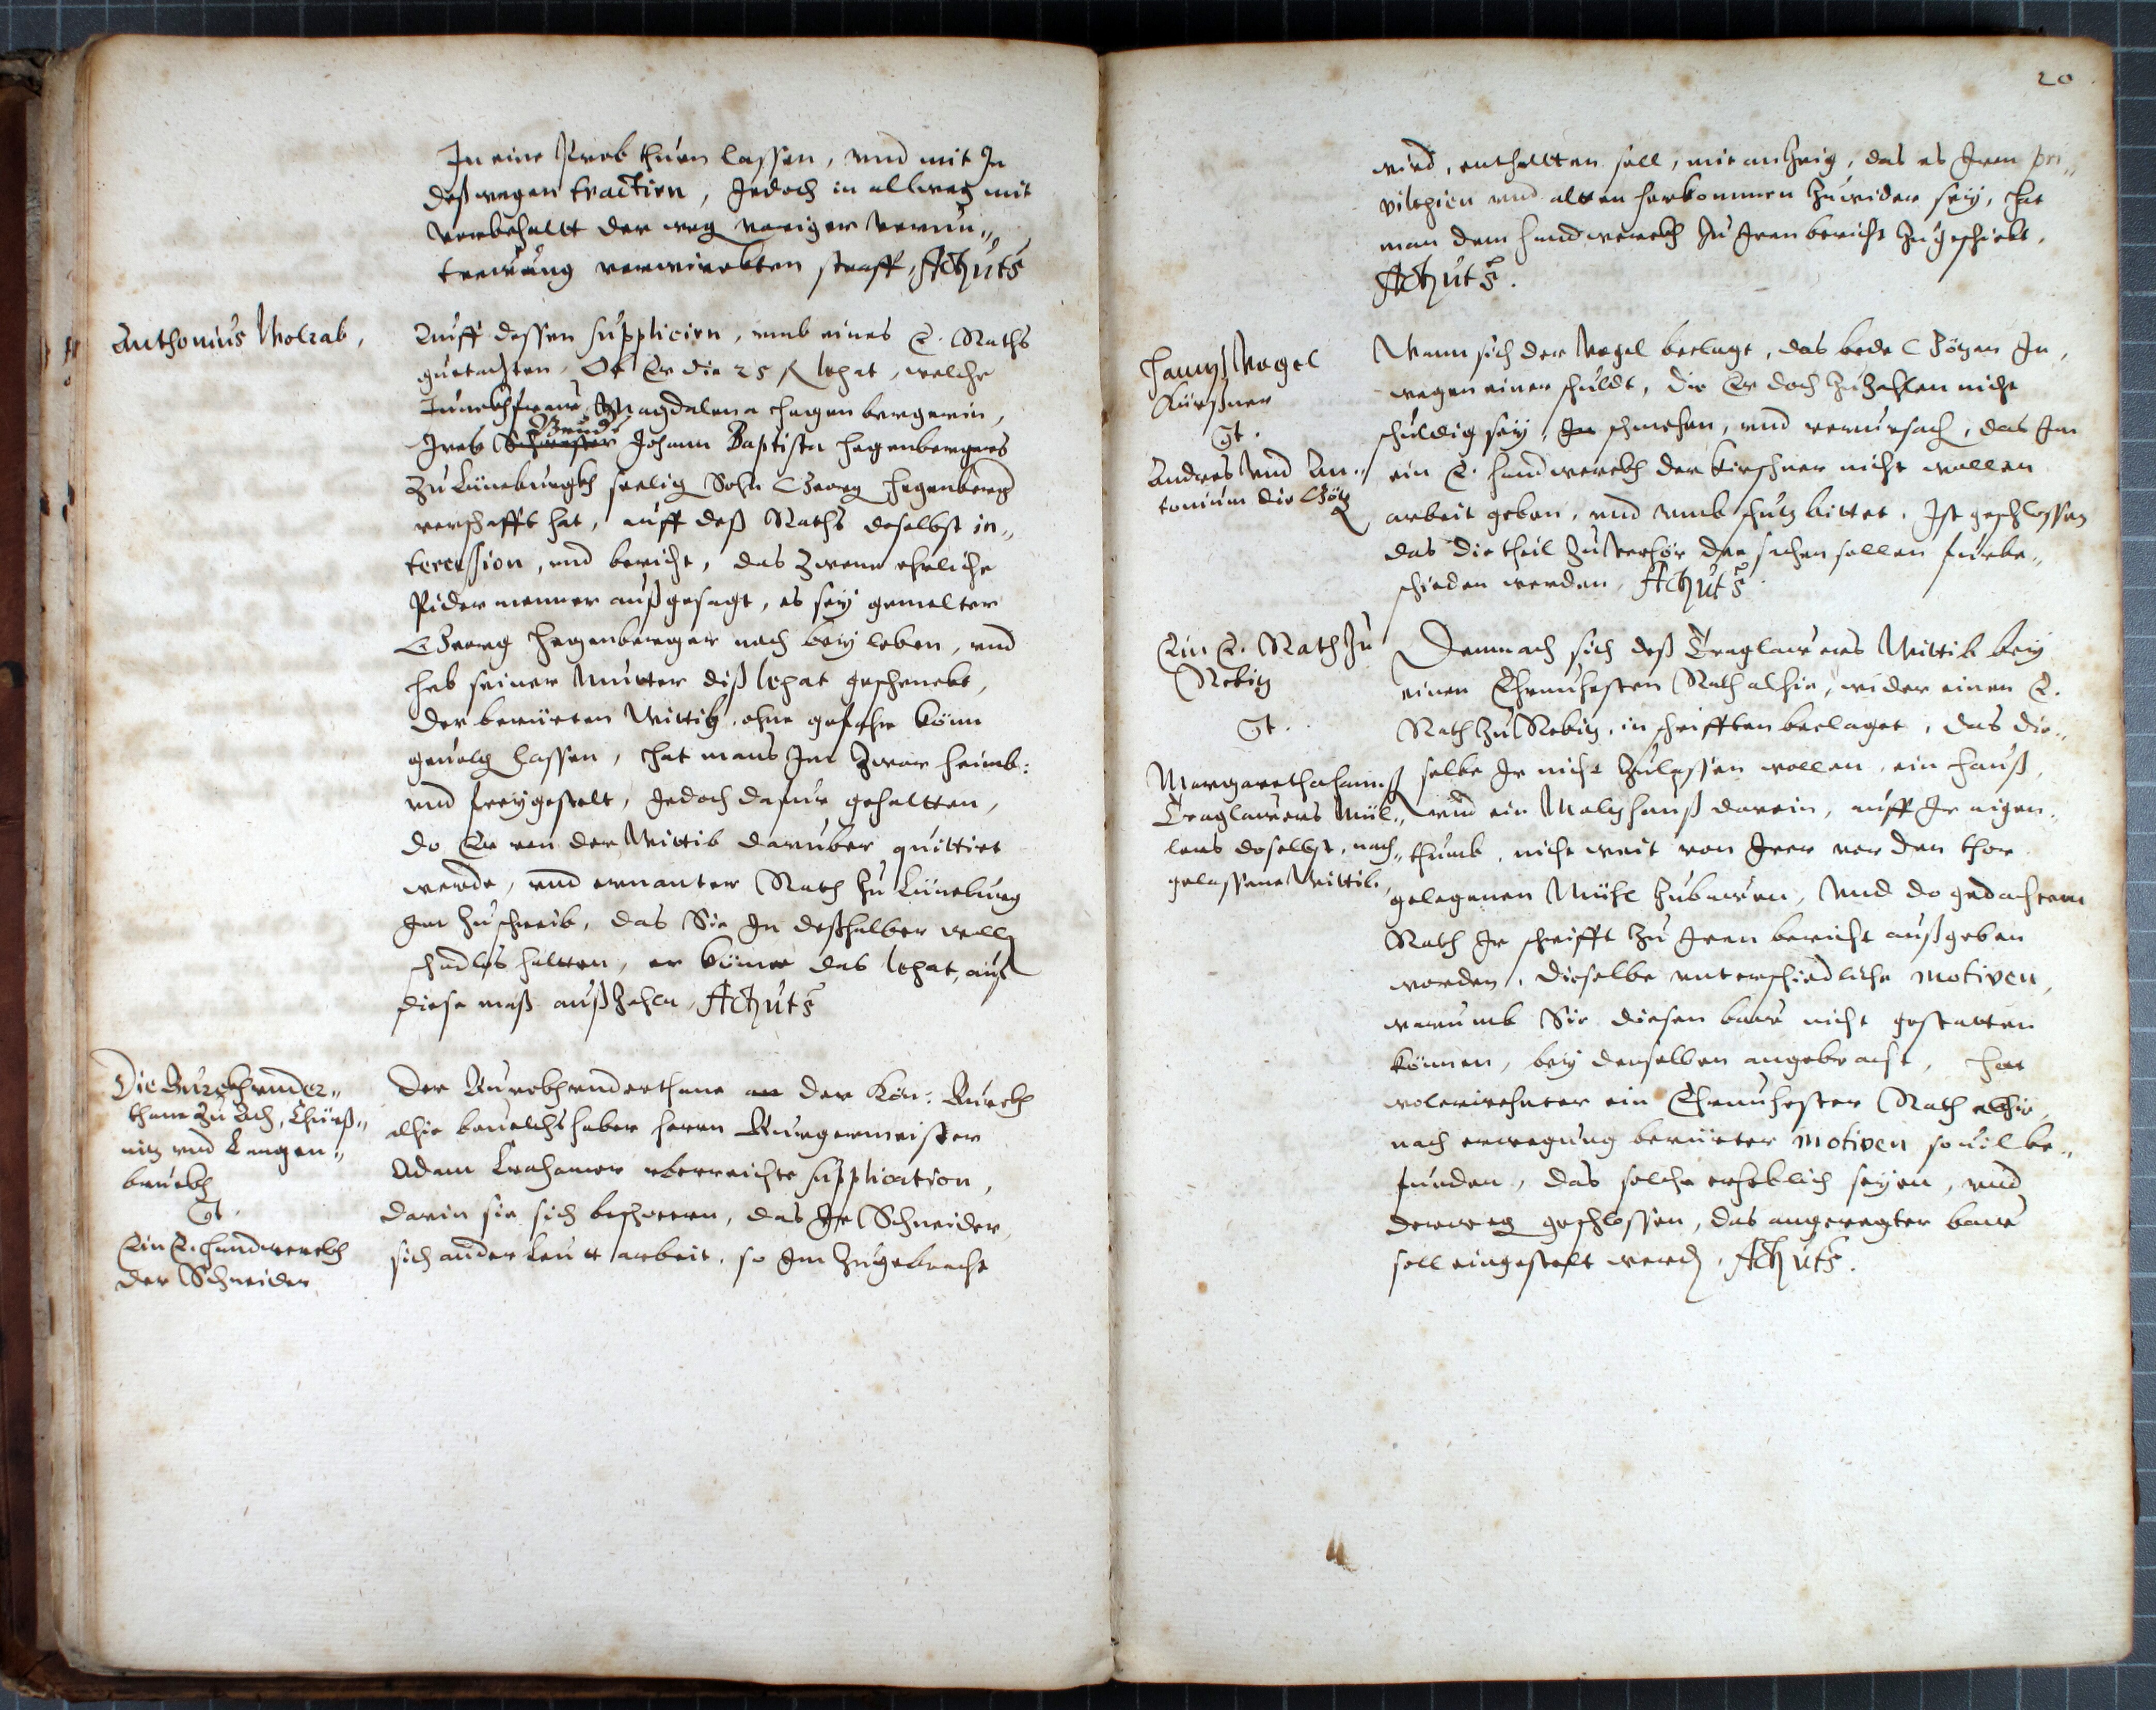 In eine Prob thuen lassen, vnd mit In
deßwegen tractirn, Jedoch in allweg mit
vorbehallt der weg voriger verun„
trewung verwirckten straff, Act: ut s
Anthonius Wolrab,
Auff dessen suppliciren, vmb eines E. Raths
guetachten, Ob Er die 25 fl legat, welche
Junckhfraw Magdalena Hegenbergerin,
Ires Schwester Bruders Johann Baptista Hegenbergers
zu Lüneburgkh seelig Sohn Georg Hegenberg
verschafft hat, auff deß Raths doselbst in„
tercession, vnd bericht, das zwene ehrliche
Pidermenner außgesagt, es sey gemelter
Georg Hegenberger noch bey leben, vnd
hab seiner Mutter diß legat geschenckt,
der berürten Wittib, ohne gefahr könn
geuolg lassen, Hat mans Im zwar heimb:
vnd freygestelt, Jedoch dafür gehaltten,
do Er von der Wittib darüber quittirt
werde, vnd ernanter Rath zu Lüneburg
Im zuschreib, das Sie In deßhalber wolln
schadlos haltten, er könne das legat, auf
diese maß außzahln, Act: ut s
Die Burckhvnder„
thane zu Ach,
nitz vnd Langen„
bruckh
Ct.
Ein E. Handwerckh
der Schneider
Der Burckhvnderthane an der Kön: Burckh
alhie beuelchshaber herrn Burgermeister
Adam vberreichte supplication,
darin sie sich beschwern, das Ir Schneider,
sich ander Leutt arbeit, so Im zugebracht
20
wird, enthaltten soll, mit anzeig, das es Irem pri„
vilegien vnd altten herkommen zuwider sey, Hat
man dem Handwerckh zu Iren bericht zugeschickt,
Act: ut s.
Hannß Vogel
Kürßner
Ct.
Andres vnd An„
tonium die Götz
Wann sich der Vogel beclagt, das bede Götzen In,
wegen einer schuldt, die Er doch zuzahlen nicht
schuldig sey, In schmehen, vnd verursach, das Im
ein E. Handwerckh der Kirschner nicht wollen
arbeit geben, vnd vmb schutz bittet, Ist geschlossen
das die theil zu Verhör der sachen sollen fürbe„
schieden werden, Act: ut s.
Ein E. Rath zu
Rebitz
Ct.
Margaretha Hannß
Traglawers Mül„
lers doselbst, nach„
gelassene Wittib,
Demnach sich deß Traglawers Wittib bey
einen Ehrnuhesten Rath alhie, wider einen E.
Rath zu Rebitz, in schrifften beclaget, das die„
selbe Ir nicht zulassen wollen, ein Hauß,
vnd ein Maltzhauß darein, auff Ir aigen„
thumb, nicht weit von Irer vor den thor
gelegenen Mühl zubawen, Vnd do gedachtem
Rath Ir schrifft zu Iren bericht außgeben
worden, dieselbe vnterschiedliche motiven,
warumb Sie diesen baw nicht gestatten
können, bey denselben angebracht, Hat
wolermelter ein Ehrnuhester Rath alhie,
nach erwegung berürter motiven souil be„
funden, das solche erheblich seyen, vnd
derweg geschlossen, das angeregter baw
soll eingestelt werdn, Act: ut s.